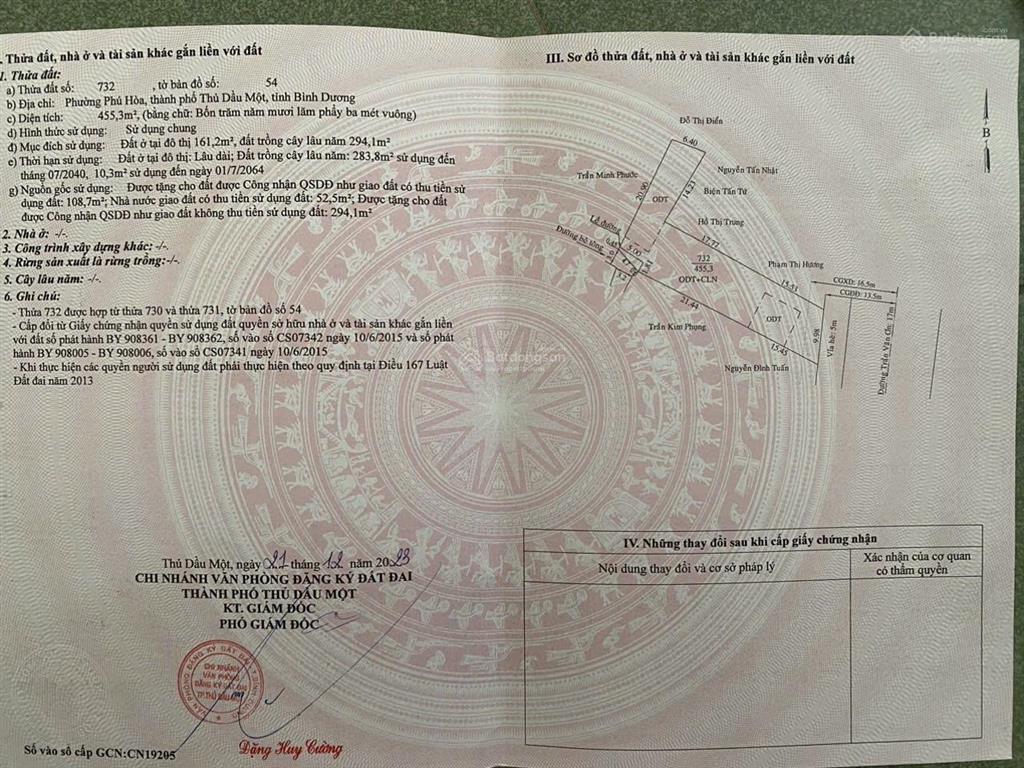 . Thửa đất, nhà ở và tài sản khác gắn liền với đất
1. Thửa đất:
a) Thửa đất số: 732 , tờ bản đồ số: 54
b) Địa chỉ: Phường Phú Hòa, thành phố Thủ Dầu Một, tỉnh Bình Dương
c) Diện tích: 455,3m², (bằng chữ: Bốn trăm năm mươi lăm phẩy ba mét vuông)
d) Hình thức sử dụng: Sử dụng chung
đ) Mục đích sử dụng: Đất ở tại đô thị 161,2m², đất trồng cây lâu năm 294,1m²
e) Thời hạn sử dụng: Đất ở tại đô thị: Lâu dài; Đất trồng cây lâu năm: 283,8m² sử dụng đến
tháng 07/2040, 10,3m² sử dụng đến ngày 01/7/2064
g) Nguồn gốc sử dụng: Được tặng cho đất được Công nhận QSDĐ như giao đất có thu tiền sử
dụng đất: 108,7m²; Nhà nước giao đất có thu tiền sử dụng đất: 52,5m²; Được tặng cho đất
được Công nhận QSDĐ như giao đất không thu tiền sử dụng đất: 294,1m²
2. Nhà ở: -/-.
3. Công trình xây dựng khác: -/-.
4. Rừng sản xuất là rừng trồng:-/-.
5. Cây lâu năm: -/-.
6. Ghi chú:
- Thửa 732 được hợp từ thửa 730 và thửa 731, tờ bản đồ số 54
- Cấp đổi từ Giấy chứng nhận quyền sử dụng đất quyền sở hữu nhà ở và tài sản khác gắn liền
với đất số phát hành BY 908361 - BY 908362, số vào sổ CS07342 ngày 10/6/2015 và số phát
hành BY 908005 - BY 908006, số vào sổ CS07341 ngày 10/6/2015
- Khi thực hiện các quyền người sử dụng đất phải thực hiện theo quy định tại Điều 167 Luật
Đất đai năm 2013
Thủ Dầu Một, ngày 21 tháng 12 năm 2023
CHI NHÁNH VĂN PHÒNG ĐĂNG KÝ ĐẤT ĐAI
THÀNH PHỐ THỦ DẦU MỘT
KT. GIÁM ĐỐC
PHÓ GIÁM ĐỐC
CHI NHÁNH
VĂN PHÒNG
ĐĂNG KÝ ĐẤT ĐAI
TP.THỦ DẦU MỘT
Đặng Huy Cường
Số vào sổ cấp GCN:CN19205
III. Sơ đồ thửa đất, nhà ở và tài sản khác gắn liền với đất
Đỗ Thị Điền
6.40
B
Nguyễn Tấn Nhật
Trần Minh Phước
20.90
ODT
14.23
Biện Tấn Tứ
Lề đường
Hồ Thị Trung
Đường bê tông
5.00
17.77
732
455,3
ODT+CLN
Phạm Thị Hương
15.51
CGXD: 16.5m
CGĐĐ: 13.5m
21.44
ODT
Trần Kim Phụng
15.45
9.98
Vỉa hè: 5m
Đường Trần Văn Ơn: 17m
Nguyễn Đình Tuấn
Batdongsan
IV. Những thay đổi sau khi cấp giấy chứng nhận
Nội dung thay đổi và cơ sở pháp lý
Xác nhận của cơ quan
có thẩm quyền